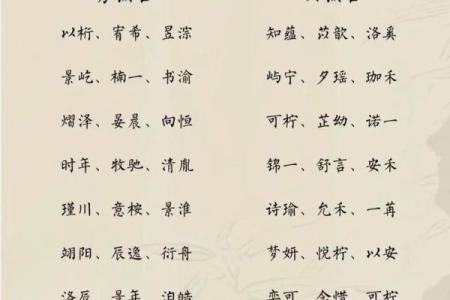 以桁、宥希、昱淙 知蕴、苡歆、洛奚
景屹、楠一、书渝 屿宁、夕瑶、珈禾
熠泽、晏晨、向恒 可柠、芷幼、诺一
时年、牧驰、清胤 锦一、舒言、安禾
瑾川、意桉、景淮 诗瑜、允禾、一苒
翊阳、辰逸、衍舟 梦妍、悦柠、以安
洛辰、景年、泊皓 奕可、念惜、可柠